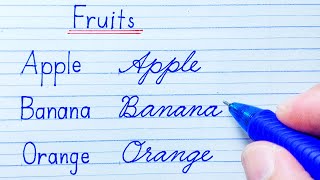 Fruits
Apple Apple
Banana Banana
Orange Orange